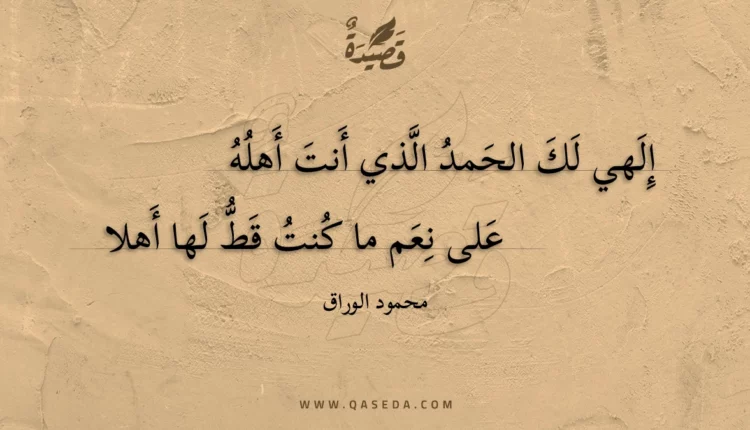 قَصِيدَةٌ
إِلَهي لَكَ الحَمدُ الَّذي أَنتَ أَهلُهُ
عَلى نِعَم ما كُنتُ قَطُّ لَها أَهلا
محمود الوراق
WWW.QASEDA.COM